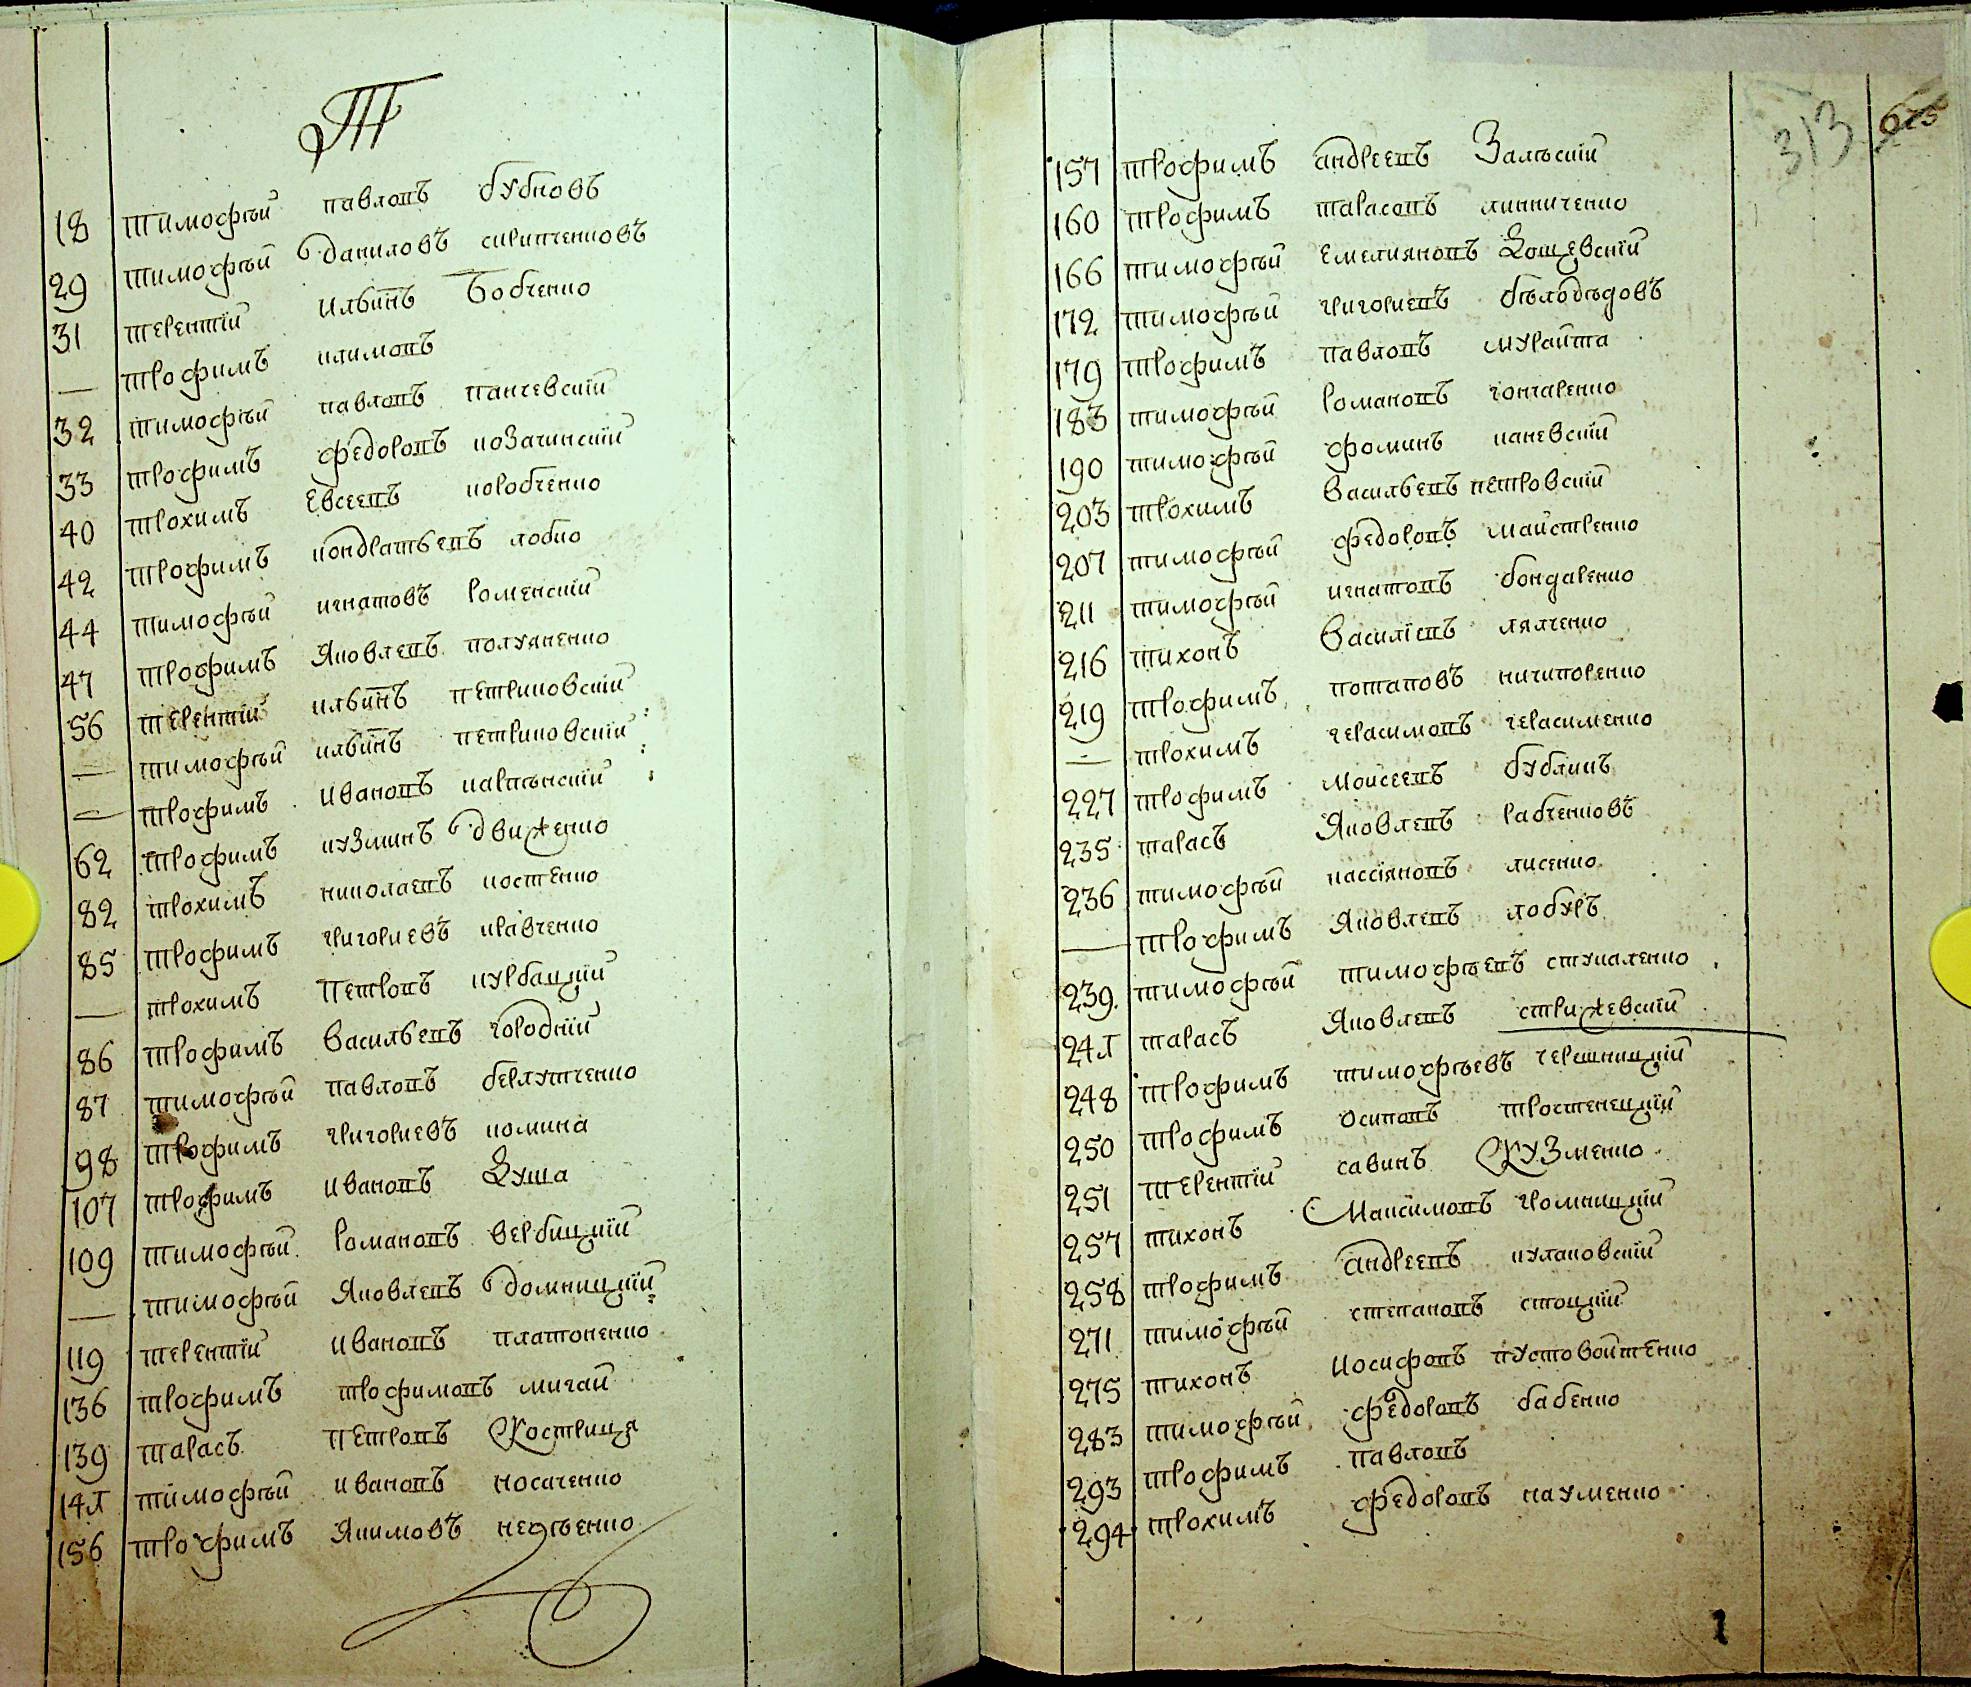 Т
18 тимофѣй павловъ бубновъ
29 тимофѣй даниловъ скрипченковъ
31 терентїй ильинъ Бобченко
— трофимъ климовъ
32 тимофѣй павловъ панчевскїй
33 трофимъ федоровъ козачинскїй
40 трохимъ Евсеевъ коробченко
42 трофимъ кондратьевъ лобко
44 тимофѣй игнатовъ роменскїй
47 трофимъ Яковлевъ полуяненко
56 терентїй ильинъ петриковскїй
— тимофѣй ильинъ петриковскїй
— трофимъ Ивановъ карпѣнскїй
62 трофимъ кузминъ движенко
82 трохимъ николаевъ костенко
85 трофимъ григориевъ кравченко
— трохимъ Петровъ курбацкїй
86 трофимъ Васильевъ городнїй
87 тимофѣй павловъ берлутченко
98 трофимъ григориевъ комина
107 трофимъ Ивановъ Куша
109 тимофѣй романовъ вербицкїй
— тимофѣй Яковлевъ домницкїй
119 терентїй Ивановъ платоненко
136 трофимъ трофимовъ мигай
139 тарасъ Петровъ Кострица
141 тимофѣй ивановъ носаченко
156 трофимъ Якимовъ
313
157 трофимъ андреевъ Залѣскїй
160 трофимъ тарасовъ линниченко
166 тимофѣй Емелияновъ Кощевскїй
172 тимофѣй григориевъ бѣлобѣдовъ
179 трофимъ павловъ мурайта
183 тимофѣй романовъ гончаренко
190 тимофѣй фоминъ каневскїй
203 трохимъ Васильевъ петровскїй
207 тимофѣй федоровъ майстренко
211 тимофѣй игнатовъ бондаренко
216 тихонъ Василїевъ лялченко
219 трофимъ потаповъ ничипоренко
— трохимъ герасимовъ герасименко
227 трофимъ моисеевъ бубликъ
235 тарасъ Яковлевъ рабченковъ
236 тимофѣй кассїяновъ лисенко
— трофимъ Яковлевъ лобуръ
239 тимофѣй тимофѣевъ стукаленко
241 тарасъ Яковлевъ стрижевскїй
248 трофимъ тимофѣевъ герешницкїй
250 трофимъ осиповъ тростенецкїй
251 терентїй савинъ Кузменко
257 тихонъ Максимовъ громницкїй
258 трофимъ андреевъ кулаковскїй
271 тимофѣй степановъ стоцкїй
275 тихонъ иосифовъ пустовойтенко
283 тимофѣй федоровъ бабенко
293 трофимъ павловъ
294 трохимъ федоровъ науменко